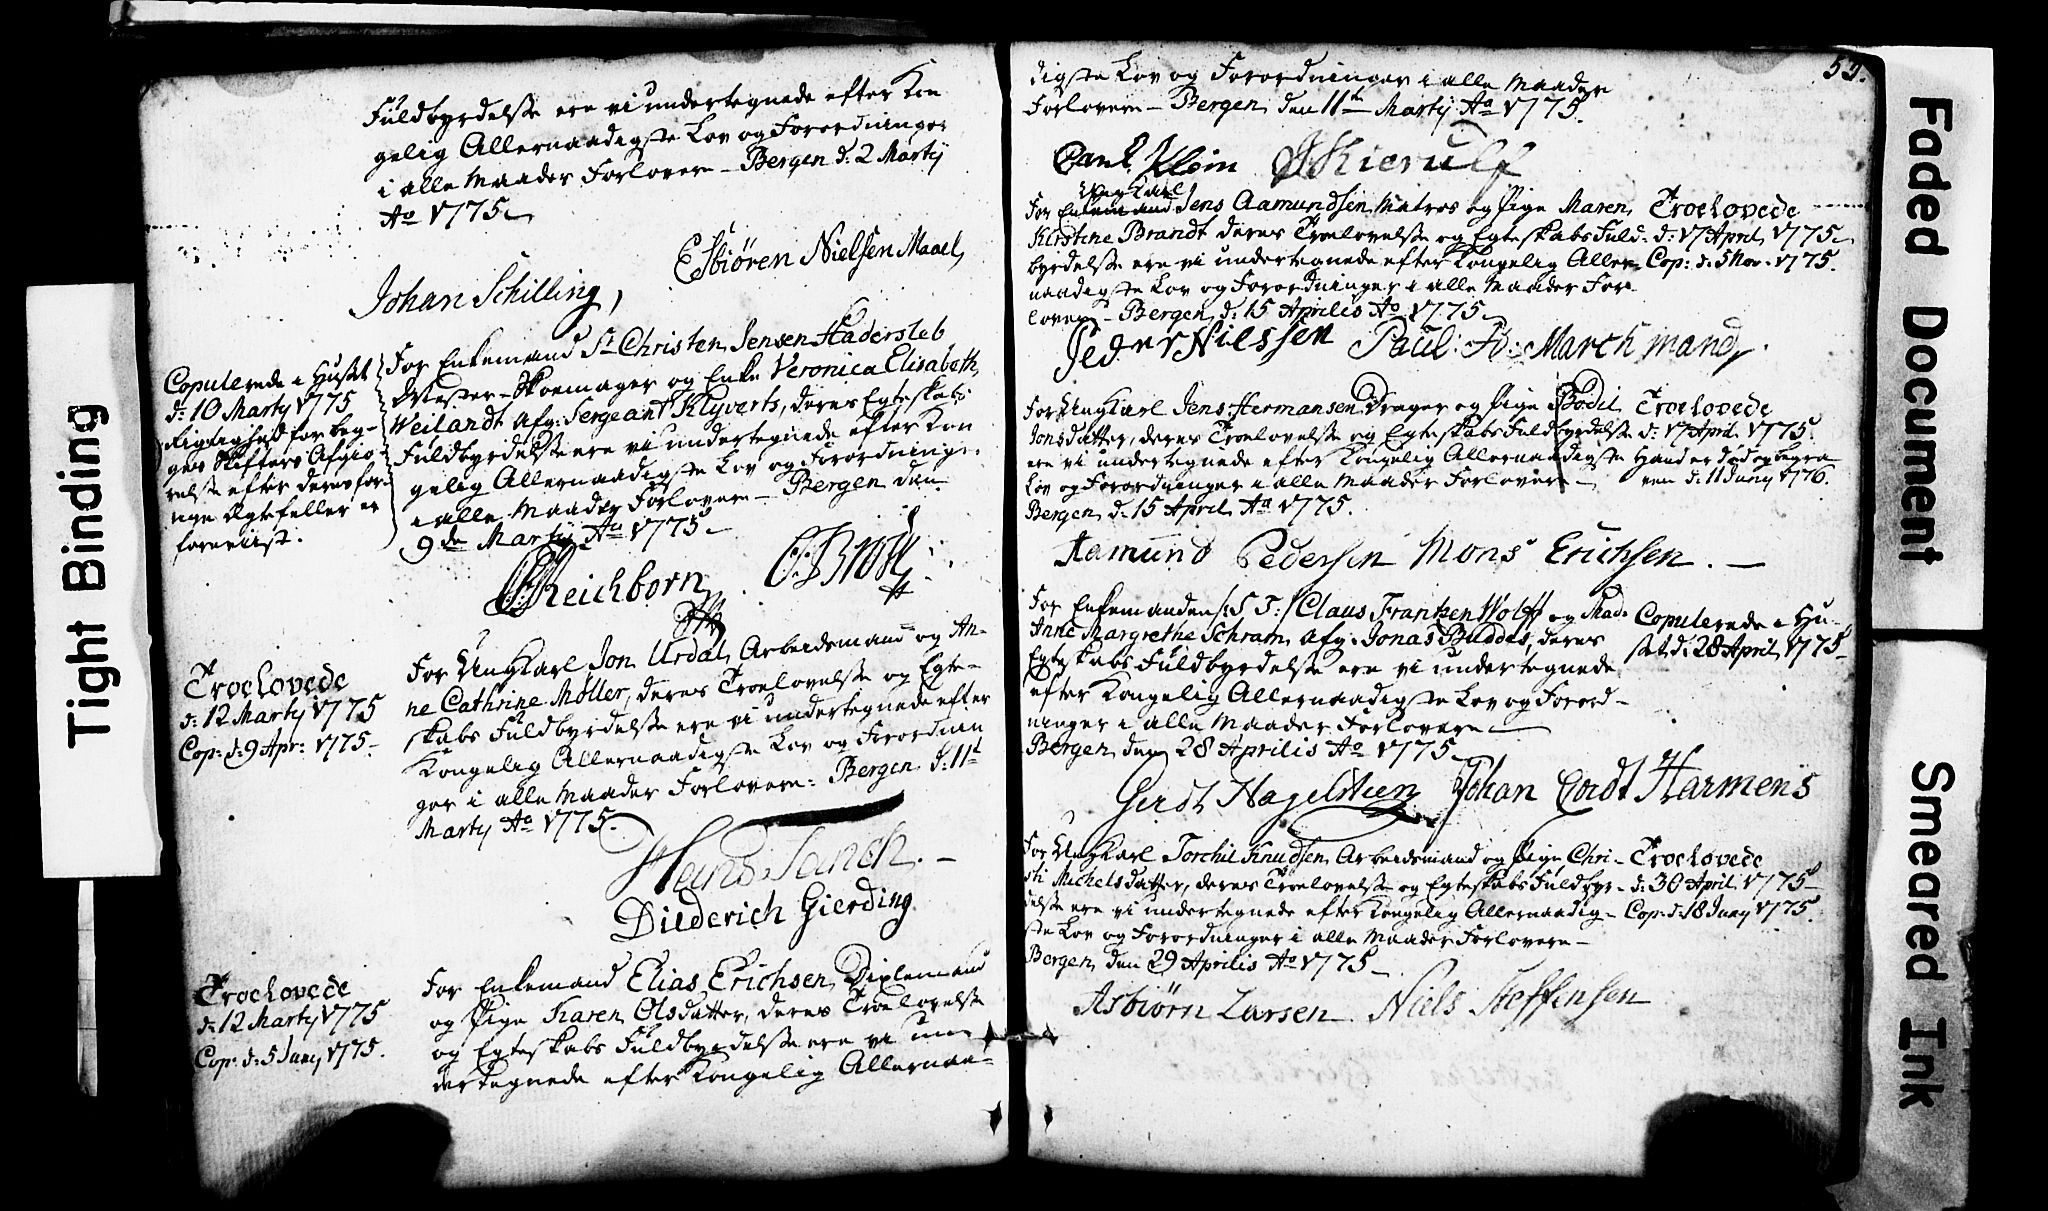 Fuldbyrdelse ere vi undertegnede efter Kon
gelig Allernaadigste Lov og Forordninger
i alle Maader Forlovere – Bergen d: 2 Martij
Ao 1775
Johan Schilling,
Esbiören Nielsen Maael,
Copulerede i Huset
d: 10 Marty 1775
Rigtighed for beg-
ges Skifters Afgiö-
relse efter deres for-
rige Ægtefeller er
foreviist.
For Enkemand Sr Christen Jensen Hadersleb
Mester-Skoemager og Enke Veronica Elisabeth
Weilandt afg: Sergeant Klyverts, deres Egteskabs
Fuldbyrdelse ere vi undertegnede efter Kon
gelig Allernaadigste Lov og Forordninger
i alle Maader Forlovere – Bergen den
9de Marty Ao 1775
Reichborn
Troelovede
d: 12 Marty 1775
Cop: d: 9 Apr: 1775
For Ungkarl Jon Urdal, Arbeidsmand og An-
ne Cathrine Møller, deres Troelovelse og Egte-
skabs Fuldbyrdelse ere vi undertegnede efter
Kongelig Allernaadigste Lov og Forordnin
ger i alle Maader Forlovere: Bergen d: 11t
Marty Ao 1775.
Hans Tanch.
Diederich Gierding
Troelovede
d: 12 Marty 1775
Cop: d: 5 Juny 1775.
For Enkemand Elias Erichsen Dixlemand
og Pige Karen Olsdatter, deres Troelovelse
og Egteskabs Fuldbyrdelse ere vi un
dertegnede efter Kongelig Allernaa-
digste Lov og Forordninger i alle Maader
Forlovere – Bergen den 11te Martij Ao 1775.
Carl Klein J Kierulf
Ungkarl
For Enkemand Jens Aamundsen Matros og Pige Maren
Kirstine Brandt deres Troelovelse og Egteskabs Fuld-
byrdelse ere vi undertegnede efter Kongelig Aller-
naadigste Lov og Forordninger i alle Maader For-
lovere – Bergen d: 15 Aprilis Ao 1775
Troelovede
d: 17 April 1775
Cop: d: 5 Nov: 1775.
Peder Nilssen Paul: Fr: Marchmand
For Ungkarl Jens Hermansen Drager og Pige Bodil
Jonsdatter, deres Troelovelse og Egteskabs Fuldbyrdelse
ere vi undertegnede efter Kongelig Allernaadigste
Lov og Forordninger i alle Maader Forlovere –
Bergen d: 15 April Ao 1775.
Troelovede
d: 17 April 1775.
Hand er död og begra
ven d: 11 Juny 1776.
Aamund Pedersen Mons Erichsen
For Enkemanden /: S T: / Claus Frantzen Wolff og Mad:
Anne Margrethe Schram afg: Jonas Buddes, deres
Egteskabs Fuldbyrdelse ere vi undertegnede
efter Kongelig Allernaadigste Lov og Forord-
ninger i alle Maader Forlovere –
Bergen den 28 Aprilis Ao 1775
Copulerede i Hu-
set d: 28 April 1775
Gerdt Hagelsteen Johan Cordt Harmens
For Ungkarl Torchil Knudsen Arbeidsmand og Pige Chri-
sti Michelsdatter, deres Troelovelse og Egteskabs Fuldbyr-
delse ere vi undertegnede efter Kongelig Allernaadig-
ste Lov og Forordninger i alle Maader Forlovere –
Bergen den 29 Aprilis Ao 1775
Troelovede
d: 30 April 1775
Cop: d: 18 Juny 1775.
Asbiörn Larsen. Niels Steffensen
Tight Binding
Faded Document
Smeared Ink